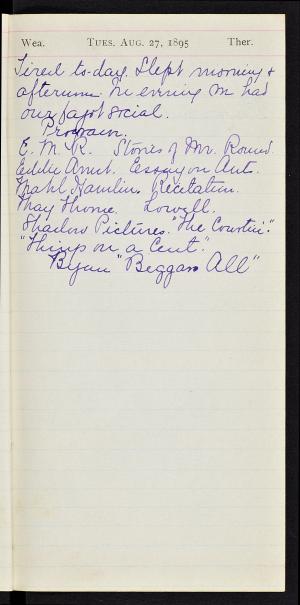 Wea. TUES. AUG. 27, 1895 Ther.
Tired to-day. Slept morning &
afternoon. In evening we had
our social.
Program.
E. M. R. Stories of Mr. Round.
Eddie Essay on Ants.
Mabl Hamlin. Recitation.
May Thorne. Lowell.
Shadow Pictures. "The Courtin'."
"Things on a Cent".
Began "Beggars All"